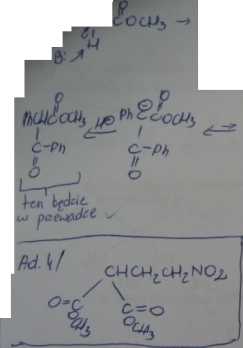 O
COCH3 →
H
B: ↗
O
PhCHCOCH3 H⊕ Ph C COCH3
C-Ph C-Ph
O O
ten będzie
w przewadze ✓
Ad. 4/
CHCH2CH2NO2
O=C C=O
OCH3 OCH3